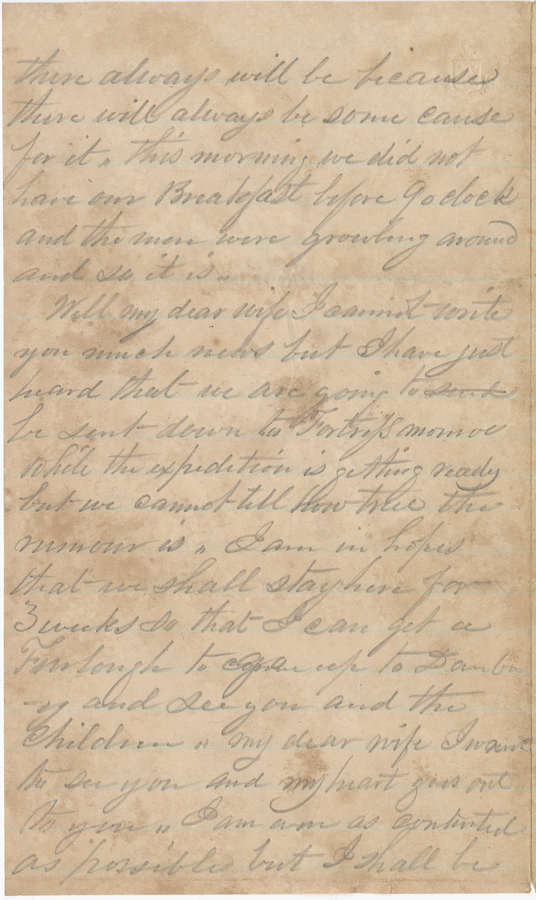 there always will be because
there will always be some cause
for it " this morning we did not
have our Breakfast before 9 oclock
and the men were growling around
and so it is "
Well my dear wife I cannot write
you much news but I have just
heard that we are going to send
be sent down to Fortress monroe
while the expedition is getting ready
but we cannot till how true the
rumour is " I am in hopes
that we shall stay here for
3 weeks so that I can get a
Furlough to up to Danbu
ry and see you and the
Children " my dear wife I want
to see you and my heart goes out
to you " I am as contented
as possible but I shall be